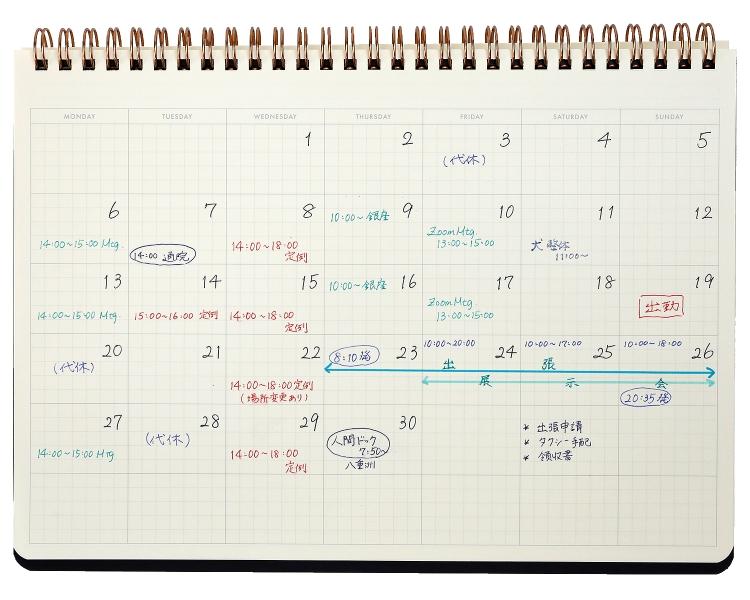 MONDAY TUESDAY WEDNESDAY THURSDAY FRIDAY SATURDAY SUNDAY
1 2 3 4 5
(代休)
6 7 8 9 10 11 12
14:00~15:00 Mtg.
14:00 通院
14:00~18:00
定例
10:00~銀座
Zoom Mtg.
13:00~15:00
犬
11:00~
13 14 15 16 17 18 19
14:00~15:00 Mtg.
15:00~16:00 定例
14:00~18:00
定例
10:00~銀座
Zoom Mtg.
13:00~15:00
出勤
20 21 22 23 24 25 26
(代休)
14:00~18:00定例
(場所変更あり)
8:10
10:00~20:00
10:00~17:00
10:00~18:00
出張
展示会
20:35
27 28 29 30
14:00~15:00 Mtg
(代休)
14:00~18:00
定例
人間ドック
7:50~
八重洲
* 出張申請
* タクシー手配
* 領収書